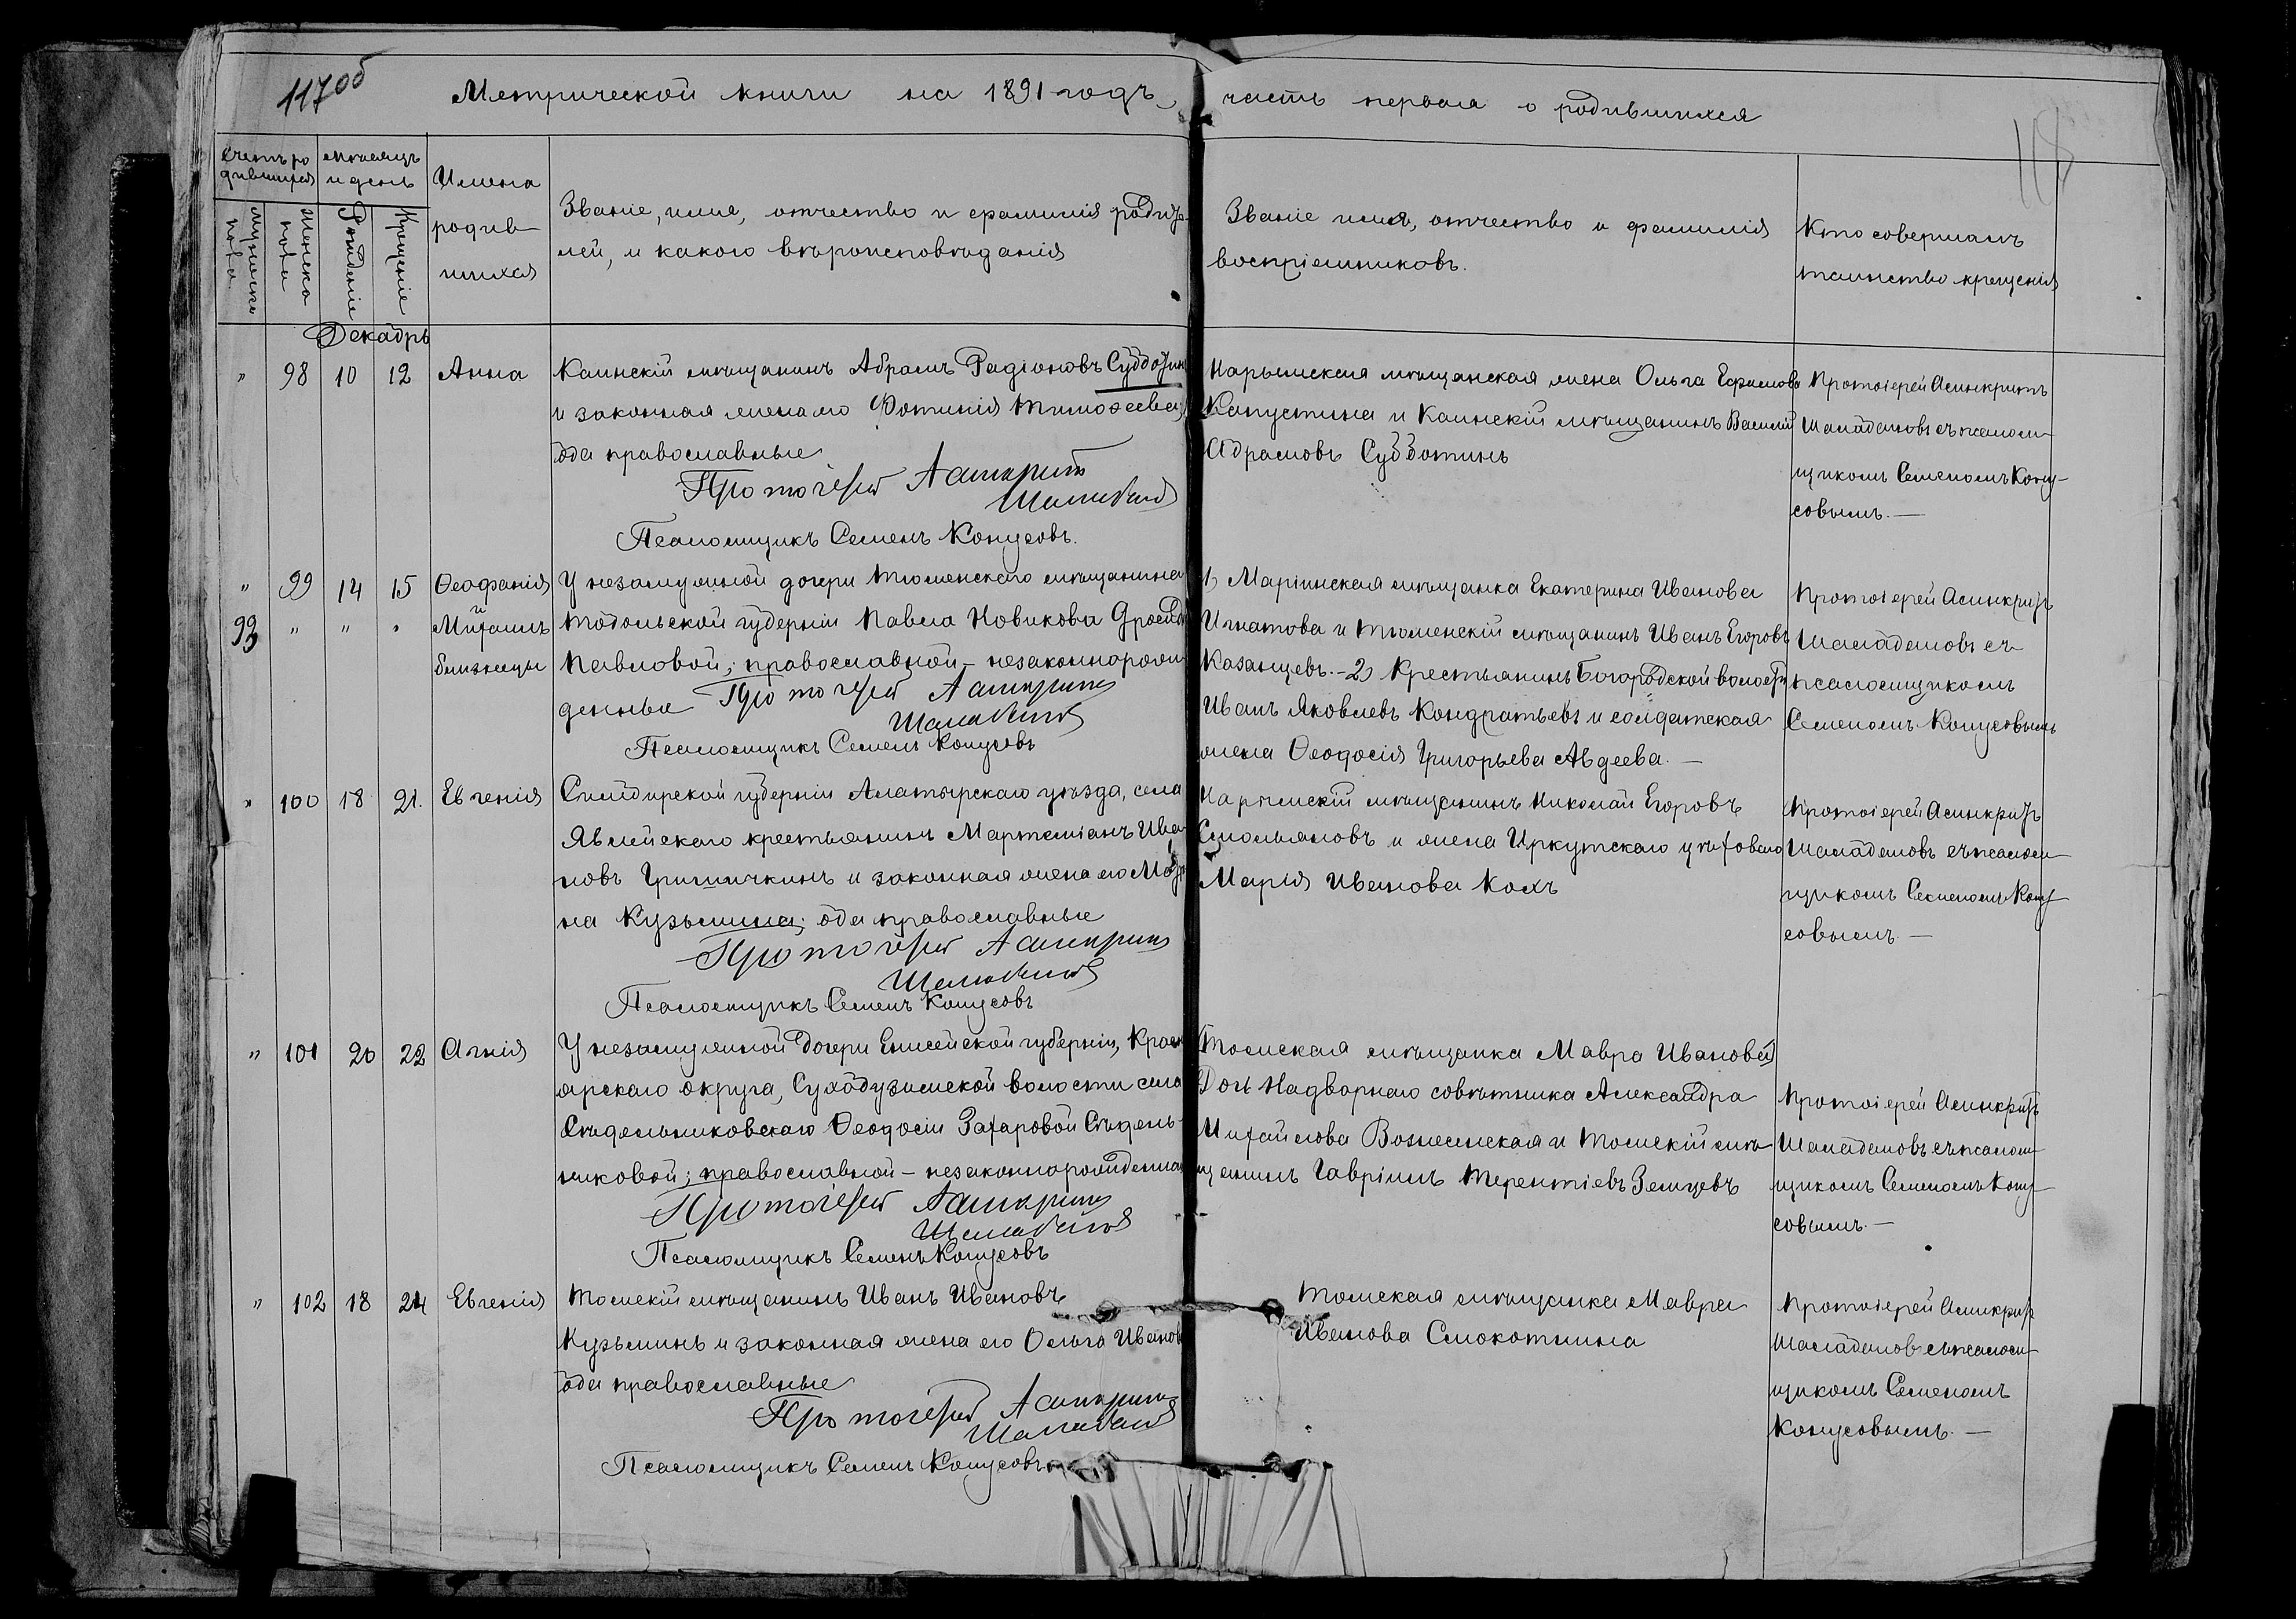 117об
Метрической книги на 1891 годъ, часть первая о родившихся
118
Счетъ родившихся
Мѣсяцъ и день
Имена родившихся
Звание, имя, отчество и фамилія родителей, и какого вѣроисповѣданія
Званіе имя, отчество и фамилія воспріемниковъ.
Кто совершалъ таинство крещенія
Мужеска пола
Женска пола
Рожденіе
Крещеніе
Декабрь
" 98 10 12 Анна
Каинскій мѣщанинъ Абрамъ Радіоновъ Субботинъ
и законная жена его Фотинія Тимоѳеева;
оба православные
Протоіерей Асинкритъ
Шалабановъ
Псаломщикъ Семенъ Конусовъ.
Нарымская мѣщанская жена Ольга Ефимова
Капустина и Каинскій мѣщанинъ Василій
Абрамовъ Субботинъ
Протоіерей Асинкритъ
Шалабановъ съ псалом-
щикомъ Семеномъ Кону-
совымъ. —
" 99 14 15 Ѳеофанія
и
99 " " " Михаилъ
близнецы
У незамужной дочери Тюменскаго мѣщанина
Тобольской губерніи Павла Новикова
Павловой; православной – незаконнорож-
денные
Протоіерей Асинкритъ
Шалабановъ
Псаломщикъ Семенъ Конусовъ
1) Маріинская мѣщанка Екатерина Иванова
Игнатова и Тюменскій мѣщанинъ Иванъ Егоровъ
Казанцевъ. – 2) Крестьянинъ Богородской волости
Иванъ Яковлевъ Кондратьевъ и солдатская
жена Ѳеодосія Григорьева Авдеева. —
Протоіерей Асинкритъ
Шалабановъ съ
псаломщикомъ
Семеномъ Конусовымъ
" 100 18 21. Евгенія
Симбирской губерніи Алатырскаго уѣзда, села
Явлейскаго крестьянинъ Мартеміанъ Ива-
новъ Гришичкинъ и законная жена его Мат-
на Кузьмина; оба православные
Протоіерей Асинкритъ
Шалабановъ
Псаломщикъ Семенъ Конусовъ
Нарымскій мѣщанинъ Николай Егоровъ
Смольяновъ и жена Иркутскаго цѣховаго
Марія Иванова Кохъ
Протоіерей Асинкритъ
Шалабановъ съ псалом-
щикомъ Семеномъ Кону-
совымъ —
" 101 20 22 Агнія
У незамужной дочери Енисейской губерніи, Красно-
ярскаго округа, Сухобузимской волости села
Сѣдельниковскаго Ѳеодосіи Захаровой Сѣдель-
никовой; православной – незаконнорожденная
Протоіерей Асинкритъ
Шалабановъ
Псаломщикъ Семенъ Конусовъ
Томская мѣщанка Мавра Иванова
Дочь Надворнаго совѣтника Александра
Михайлова Вознесенская и Томскій мѣ-
щанинъ Гавріилъ Терентіевъ Земцевъ
Протоіерей Асинкритъ
Шалабановъ съ псалом-
щикомъ Семеномъ Кону-
совымъ. —
" 102 18 24 Евгенія
Томскій мѣщанинъ Иванъ Ивановъ
Кузьминъ и законная жена его Ольга Иванова
оба православные
Протоіерей Асинкритъ
Шалабановъ
Псаломщикъ Семенъ Конусовъ
Томская мѣщанка Мавра
Иванова Смокотнина
Протоіерей Асинкритъ
Шалабановъ съ псалом-
щикомъ Семеномъ
Конусовымъ. —